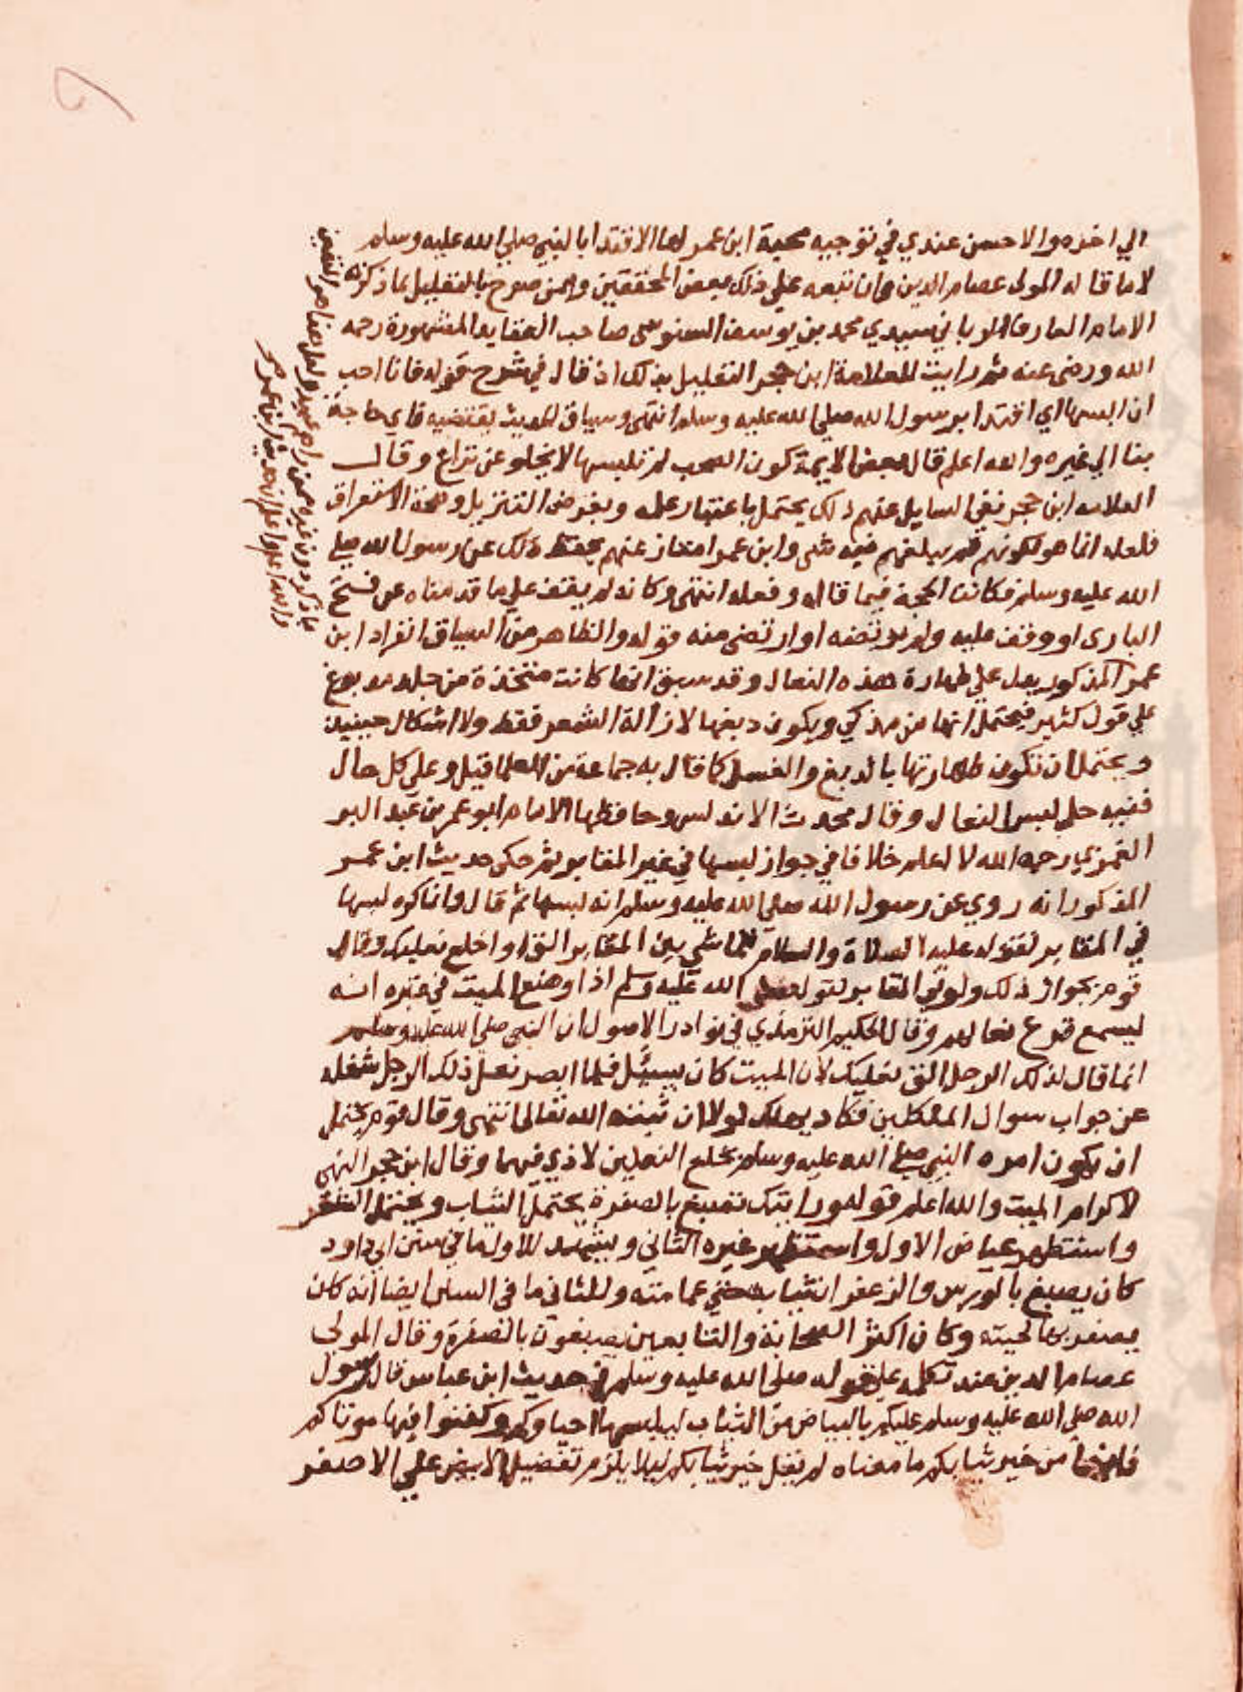 الي اخره والاحسن عندي في توجيه محبة ابن عمر لها الاقتدا بالنبي صلي الله عليه وسلم
لا ما قاله المولى عصام الدين وان تبعه علي ذلك بعض المحققين وممن صرح بالتعليل بما ذكرته
الامام العارف الرباني سيدي محمد بن يوسف السنوسي صاحب العقايد المشهورة رحمه
الله ورضي عنه ثم رايت للعلامة ابن حجر التعليل بذلك اذ قال في شرح قوله فانا احب
ان البسها اي اقتدا برسول الله صلي الله عليه وسلم انتهى وسياق الحديث يقتضيه فاي حاجة
بنا الي غيره والله اعلم قال بعض الايمة كون الصحب لم تلبسها لا يخلو عن نزاع وقال
العلامه ابن حجر نفي السايل عنهم ذلك يحتمل باعتبار علمه وبفرض التنزيل وصحة الاستغراق
فلعله انما هو لكونهم لم يبلغهم فيه شي وابن عمر امتاز عنهم بحفظ ذلك عن رسول الله صلي
الله عليه وسلم فكانت الحجة فيما قاله وفعله انتهى وكانه لم يقف علي ما قدمناه عن فتح
الباري او وقف عليه ولم يرتضه او ارتضى منه قوله والظاهر من السياق انفراد ابن
عمر المذكور يدل علي طهارة هذه النعال وقد سبق انها كانت متخذة من جلد مدبوغ
علي قول كثير فيحتمل انها من مذكي ويكون دبغها لازالة الشعر فقط ولا اشكال حينيذ
ويحتمل ان تكون طهارتها بالدبغ والغسل كما قال به جماعة من العلما قيل وعلي كل حال
ففيه حل لبس النعال وقال محدث الاندلس وحافظها الامام ابو عمر بن عبد البر
النمري رحمه الله لا اعلم خلافا في جواز لبسها في غير المقابر ثم حكى حديث ابن عمر
المذكور انه روي عن رسول الله صلي الله عليه وسلم انه لبسها ثم قال وانما كره لبسها
في المقابر لقوله عليه الصلاة والسلام للماشي بين المقابر الق او اخلع نعليك وقال
قوم بجواز ذلك ولو في المقابر لقوله صلي الله عليه وسلم اذا وضع الميت في قبره انه
ليسمع قرع نعالهم وقال الحكيم الترمذي في نوادر الاصول ان النبي صلي الله عليه وسلم
انما قال لذلك الرجل الق نعليك لان الميت كان يسئل فلما ابصر نعل ذلك الرجل شغله
عن جواب سوال الملكين فكاد يهلك لولا ان ثبته الله تعالى انتهى وقال قوم يحتمل
ان يكون امره النبي صلي الله عليه وسلم بخلع النعلين لاذي فيهما وقال ابن حجر النهي
لاكرام الميت والله اعلم قوله ورايتك تصبغ بالصفرة يحتمل الثياب ويحتمل الشعر
واستظهر عياض الاول واستظهر غيره الثاني ويشهد للاول ما في سنن ابي داود
كان يصبغ بالورس والزعفران ثيابه حتي عمامته وللثاني ما في السنن ايضا انه كان
يصفر بهما لحيته وكان اكثر الصحابة والتابعين يصبغون بالصفرة وقال المولى
عصام الدين عند تكلمه علي قوله صلي الله عليه وسلم في حديث ابن عباس قال رسول
الله صلي الله عليه وسلم عليكم بالبياض من الثياب ليلبسها احياوكم وكفنوا فيها موتاكم
فانها من خير ثيابكم ما معناه لم يقل خير ثيابكم ليلا يلزم تفضيل الابيض علي الاصفر